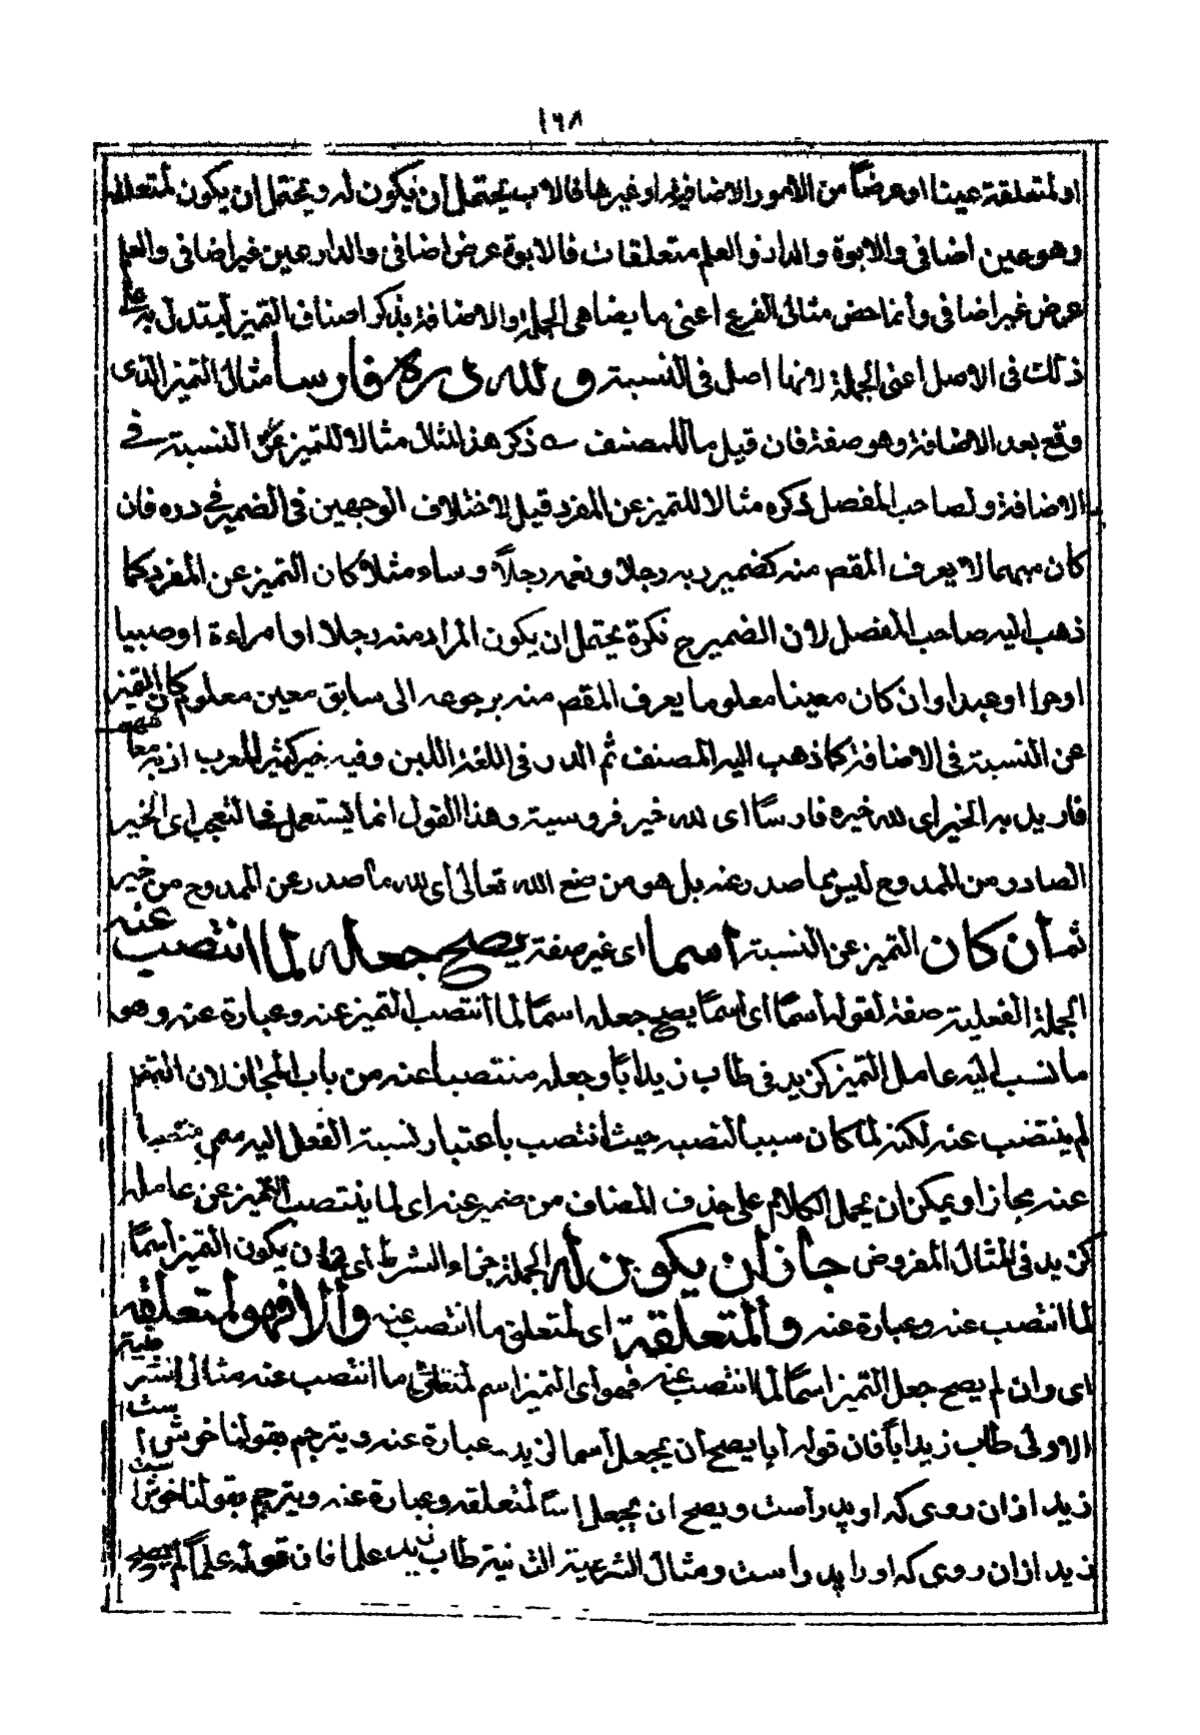 ١٦٨
او لمتعلقه عينا او عرضاً من الامور الاضافية او غيرها فالاب يحتمل ان يكون له ويحتمل ان يكون لمتعلقه
وهو عين اضافى والابوة والدار والعلم متعلقات فالابوة عرض اضافى والدار عين غير اضافى والعلم
عرض غير اضافى وانما خص مثالى الفرع اعنى ما يضاهى الجملة والاضافة بذكر اصناف التميز ليستدل به على
ذلك فى الاصل اعنى الجملة لانها اصل فى النسبة و لله دره فارسا مثال التميز الذى
وقع بعد الاضافة وهو صفة فان قيل ما للمصنف ذكر هذا المثال مثالا للتميز عن النسبة فى
الاضافة ولصاحب المفصل ذكره مثالا للتميز عن المفرد قيل لاختلاف الوجهين فى الضمير فى دره فان
كان مبهما لا يعرف المقصم منه كضمير ربه رجلا ونعم رجلاً وساء مثلاً كان التميز عن المفرد كما
ذهب اليه صاحب المفصل لان الضمير ح نكرة يحتمل ان يكون المراد منه رجلا او امراءة او صبيا
او حرا او عبدا وان كان معينا معلوما يعرف المقصم منه برجوعه الى سابق معين معلوم كان التميز
عن النسبة فى الاضافة كما ذهب اليه المصنف ثم الدر فى اللغة اللبن وفيه خير كثير للعرب
فاريد به الخير اى لله خيره فارساً اى لله خير فروسيته وهذا القول انما يستعمل فى التعجب اى الخير
الصادر من الممدوح ليس بما صدر عنه بل هو من صنع الله تعالى اى لله ما صدر عن الممدوح من خير
ثم ان كان التميز عن النسبة اسما اى غير صفة يصح جعله لما انتصب عنه
الجملة الفعلية صفة لقوله اسمًا اى اسمًا يصح جعله اسمًا لما انتصب التميز عنه وعبارة عنه وهو
ما نسب اليه عامل التميز كزيد فى طاب زيد اباً وجعله منتصبا عنه من باب المجاز لان التميز
لم ينتصب عنه لكنه لما كان سببا لنصبه حيث انتصب باعتبار نسبة الفعل اليه سمى منتصبا
عنه مجازا ويمكن ان يحمل الكلام على حذف المضاف من ضمير عنه اى لما ينتصب التميز عن عامله
كزيد فى المثال المفروض جاز ان يكون له الجملة جزاء الشرط اى جاز ان يكون التميز اسمًا
لما انتصب عنه وعبارة عنه و لمتعلقه اى لمتعلق ما انتصب عنه والا فهو لمتعلقه
اى وان لم يصح جعل التميز اسمًا لما انتصب عنه فهو اى التميز اسم لمتعلق ما انتصب عنه مثال الشرطية
الاولى طاب زيد اباً فان قوله ابا يصح ان يجعل اسما لزيد وعبارة عنه ويترجم بقولنا خوش است
زيد ازان روى كه او پدر است ويصح ان يجعل اسمًا لمتعلقه وعبارة عنه ويترجم بقولنا خوش است
زيد ازان روى كه او را پدر است ومثال الشرطية الثانية طاب زيد علما فان قوله علماً لم يصح